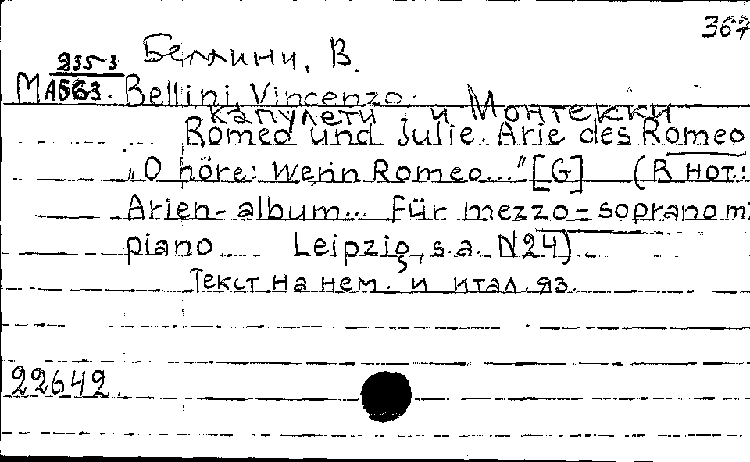 367
Беллини, В.
935-3
МА563. Bellini, Vincenzo.
Капулети и Монтекки
Romeo und Julie. Arie des Romeo
"O höre: Wenn Romeo..." [G] (В нот.:
Arien-album... für mezzo-sopran mi
piano Leipzig, s.a. N24)
Текст на нем. и итал. яз.
22642